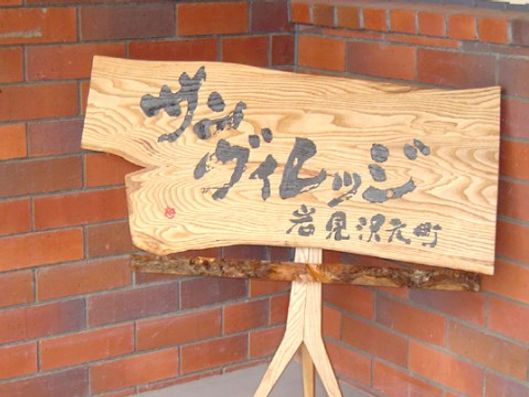 サン
ヴィレッジ
岩見沢元町